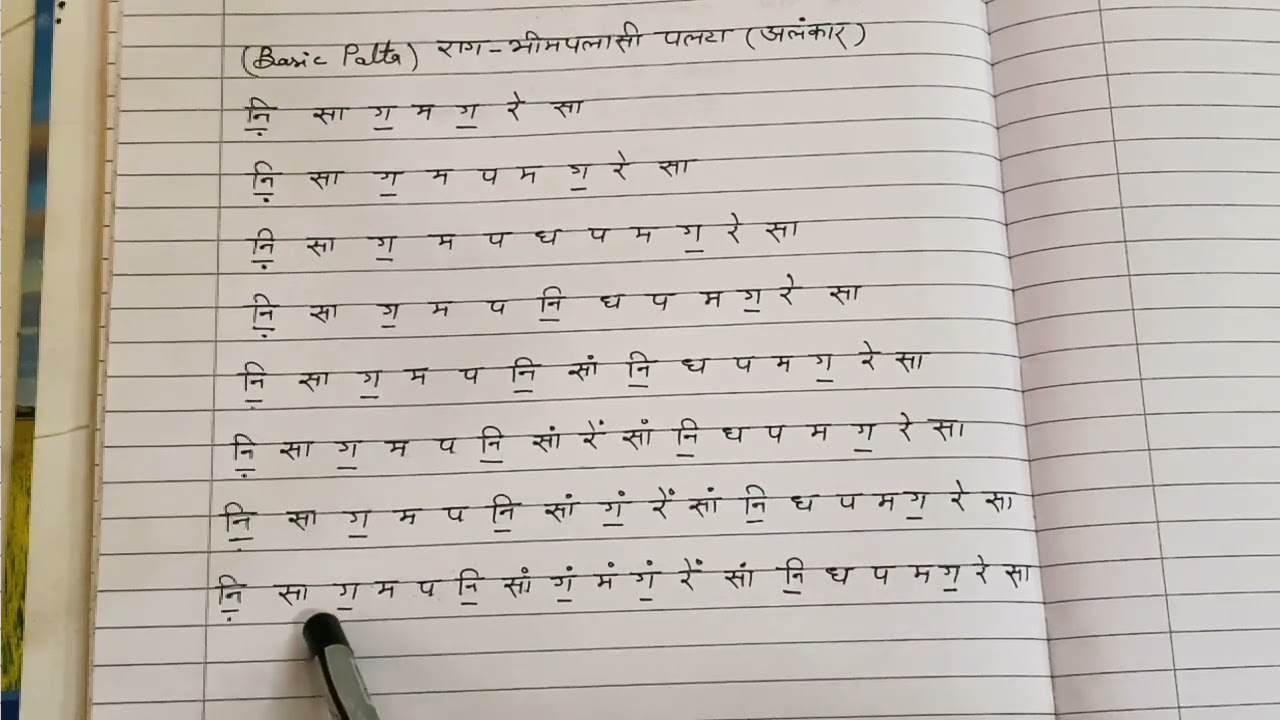 (Basic Palta) राग - भीमपलासी पलटा (अलंकार)
नि॒̣ सा ग॒ म ग॒ रे सा
नि॒̣ सा ग॒ म प म ग॒ रे सा
नि॒̣ सा ग॒ म प ध प म ग॒ रे सा
नि॒̣ सा ग॒ म प नि॒ ध प म ग॒ रे सा
नि॒̣ सा ग॒ म प नि॒ सां नि॒ ध प म ग॒ रे सा
नि॒̣ सा ग॒ म प नि॒ सां रें सां नि॒ ध प म ग॒ रे सा
नि॒̣ सा ग॒ म प नि॒ सां गं॒ रें सां नि॒ ध प म ग॒ रे सा
नि॒̣ सा ग॒ म प नि॒ सां गं॒ मं गं॒ रें सां नि॒ ध प म ग॒ रे सा